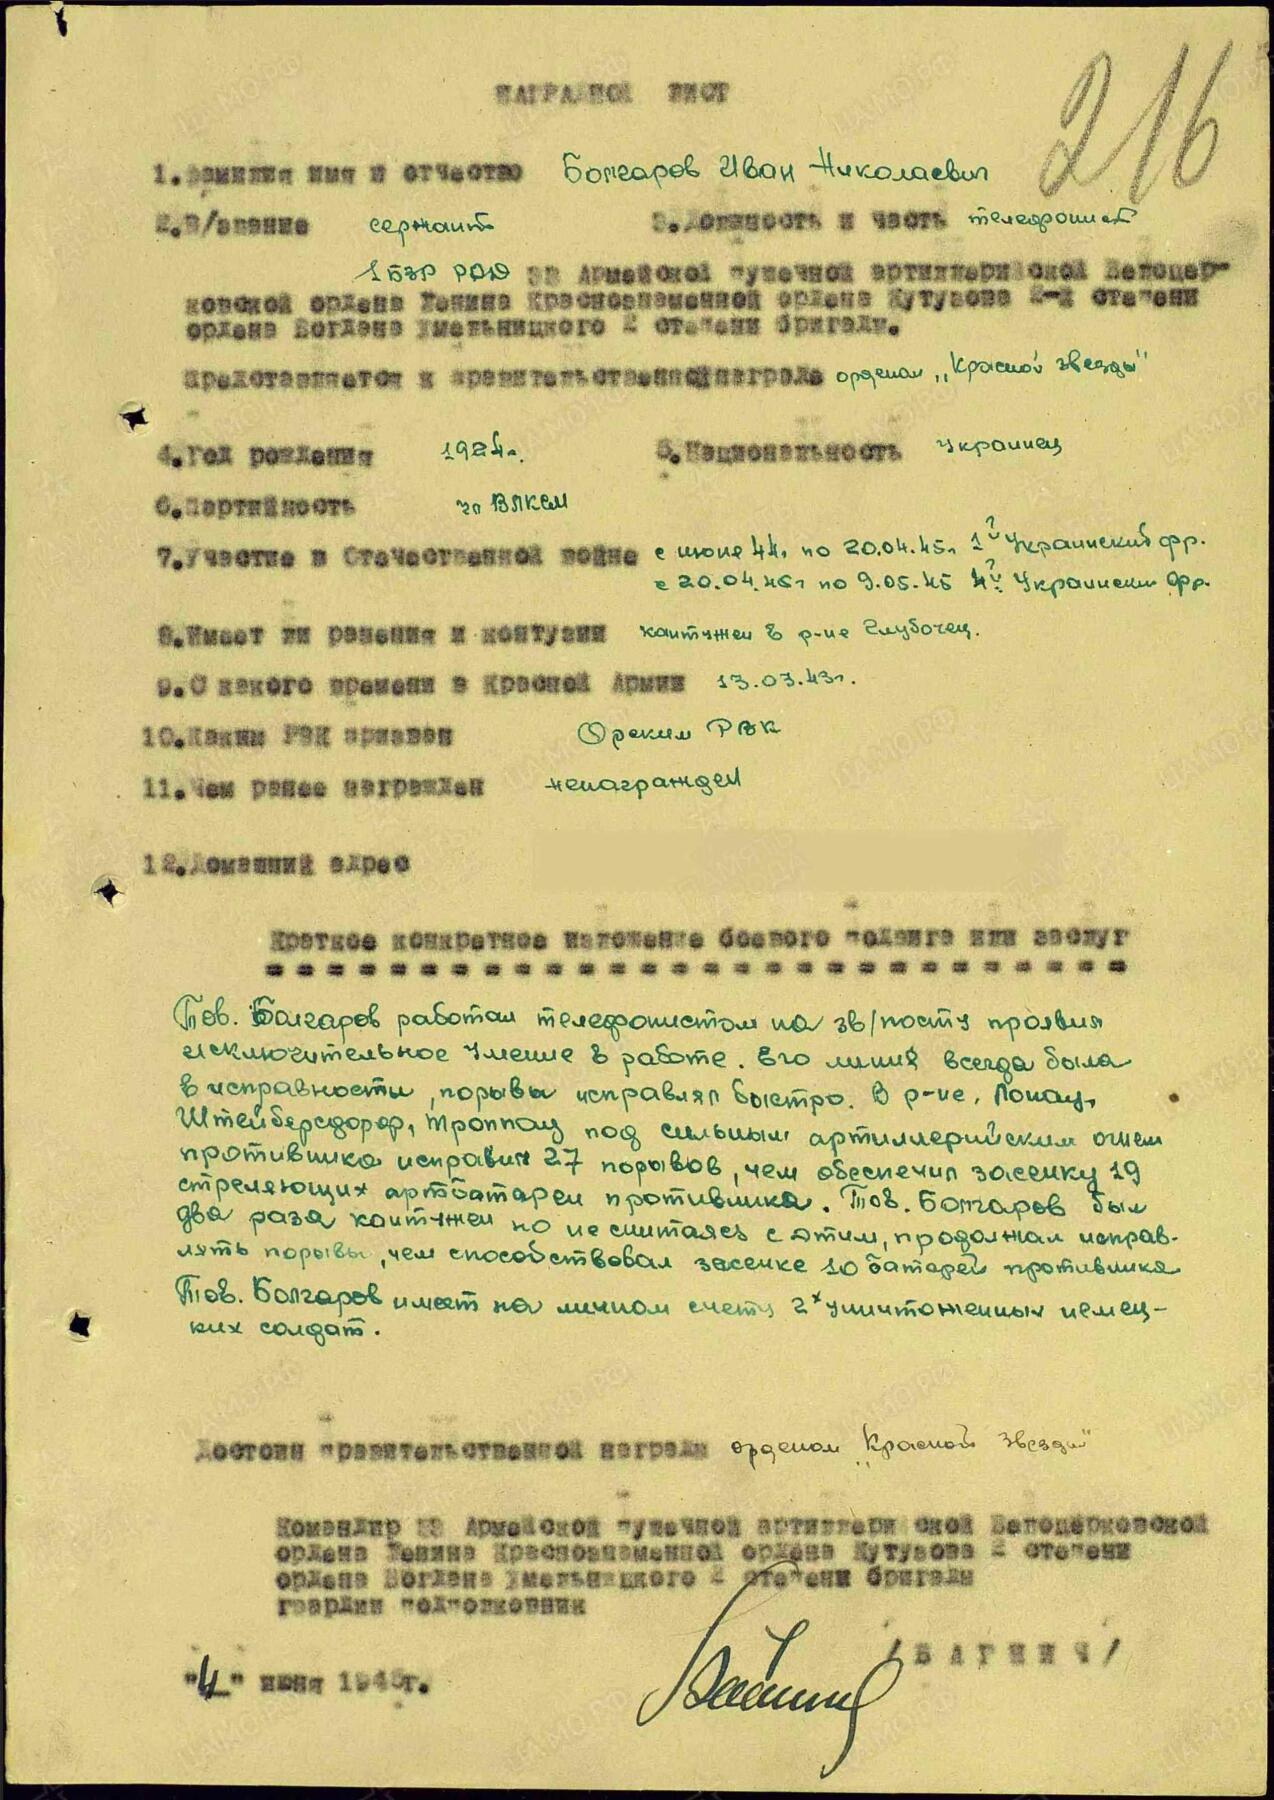 216
НАГРАДНОЙ ЛИСТ
1.Фамилия имя и отчество Болгаров Иван Николаевич
2.В/звание сержант 3.Должность и часть телефонист
1 БЗР РДН 33 Армейской пушечной артиллерийской Белоцер-
ковской ордена Ленина Краснознаменной ордена Кутузова 2-й степени
ордена Богдана Хмельницкого 2 степени бригады.
Представляется к правительственной награде орденом „Красной звезды"
4.Год рождения 1924г. 5.Национальность Украинец
6.Партийность чл ВЛКСМ
7.Участие в Отечественной войне с июне 44г по 20.04.45г 1й Украинский фр.
с 20.04.45г по 9.05.45 4й Украински фр.
8.Имеет ли ранения и контузии контужен в р-не Глубочец.
9.С какого времени в Красной Армии 13.03.43г.
10.Каким РВК призван РВК
11.Чем ранее награжден ненагражден
12.Домашний адрес
Краткое конкретное изложение боевого подвига или заслуг
= = = = = = = = = = = = = = = = = = = = = = = = = = = =
Тов. Болгаров работая телефонистом на зв/посту проявил
исключительное умение в работе. Его линия всегда была
в исправности, порывы исправлял быстро. В р-не,
Штейберсдорф, Троппау под сильным артиллерийским огнем
противника исправил 27 порывов, чем обеспечил засечку 19
стреляющих артбатареи противника. Тов. Болгаров был
два раза контужен но не считаясь с этим, продолжал исправ-
лять порывы, чем способствовал засечке 10 батарей противника
Тов. Болгаров имеет на личном счету 2х уничтоженных немец-
ких солдат.
Достоин правительственной награды орденом „Красной Звезды"
Командир 33 Армейской пушечной артиллерийской Белоцерковской
ордена Ленина Краснознаменной ордена Кутузова 2 степени
ордена Богдана Хмельницкого 2 степени бригады
гвардии подполковник
/БАГНИЧ/
"4" июня 1945г.